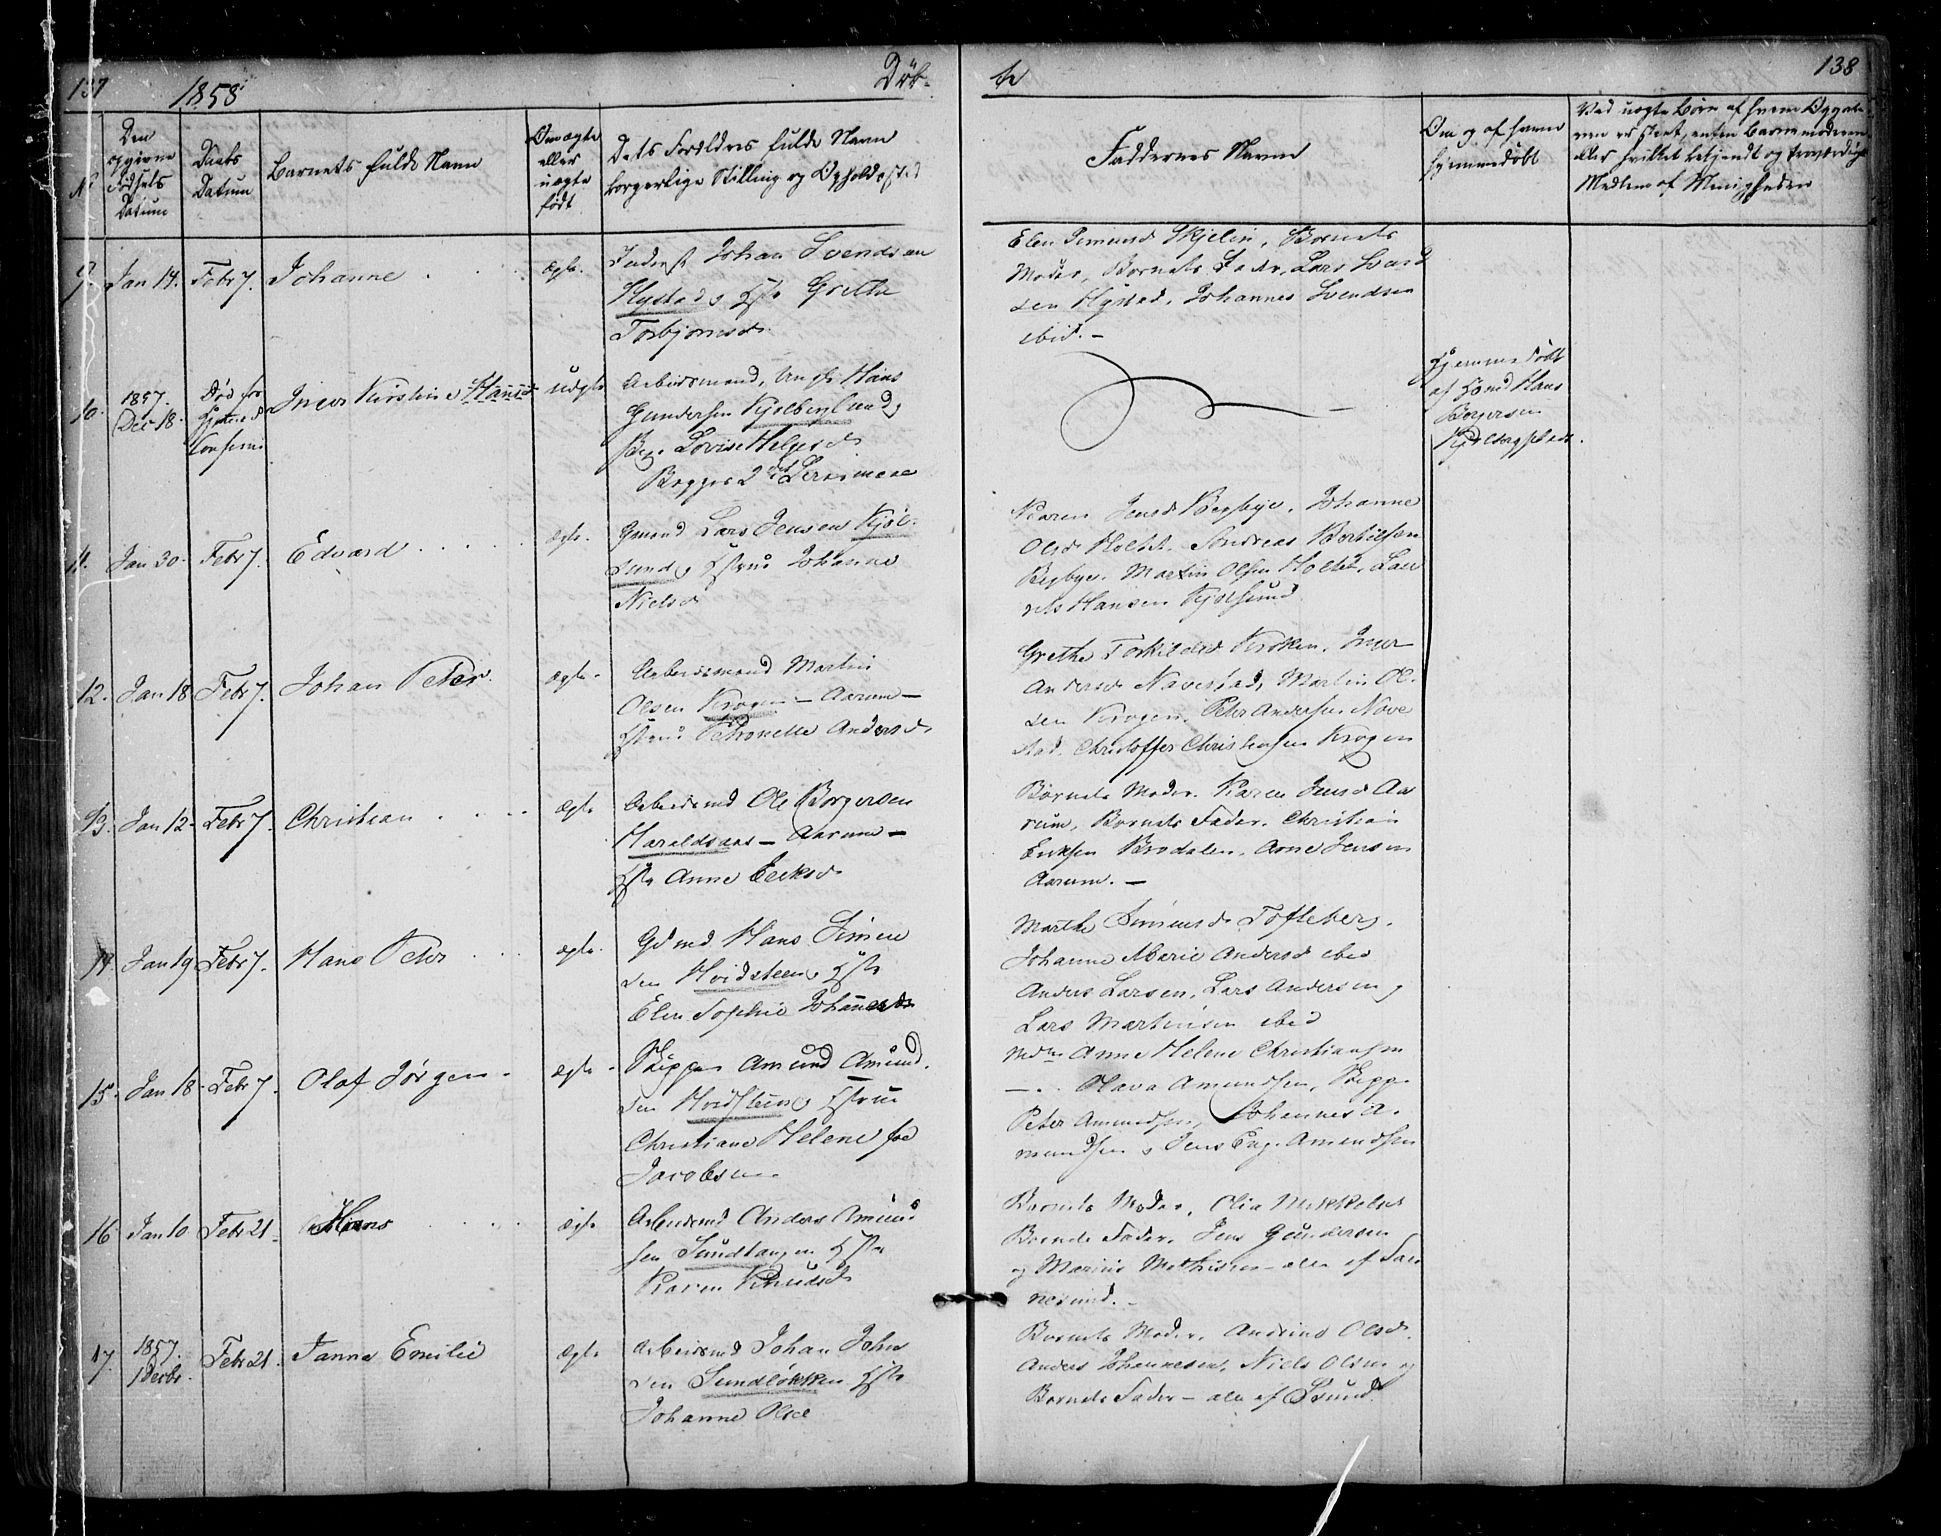 137
1858
Døb-
te
138
No
Den opgivne Fødsels Datum
Daabs Datum
Barnets fulde Navn
Om ægte eller uægte født
Dets Forældres fulde Navn
borgerlige Stilling og Opholdssted
Faddernes Navne
Om og af hvem
hjemmedøbt
Ved uægte Børn af hvem Opgivel-
sen er skeet, enten Barnemoderen
eller hvilket bekjendt og troværdigt
Medlem af Menigheden
9
Jan 14.
Febr 7.
Johanne
ægte.
Inderst Johan Svendsen
Hystad, Hstr Grethe
Torbjornsd.
Elen Svend
Moder, Barnets Fader, Lars Svend
sen Hystad, Johannes Svendsen
ibid. -
10.
1857.
Dec 18.
Død før
Inger Kirstine Hansd
uægte
Arbeidsmand, Ungk. Hans
Gundersen Kjølberglund,
Pige Lovise Helgesd.
Begges 2det Leiermaal
Hjemmedøbt
af Hans
Borgersen
11.
Jan 30.
Febr 7.
Edvard
ægte.
Gmand Lars Jensen Kjøl-
sund, Hstrue Johanne
Nielsd
Karen Jensd Begbye, Johanne
Olsd Holtet, Andreas Bertelsen
Begbye, Martin Olsen Holtet, Lau
rits Hansen Kjølsund
12.
Jan 18
Febr 7.
Johan Peter.
ægte.
Arbeidsmand Martin
Olsen Krogen - Aarum -
Hstrue Petronelle Andersd.
Grethe Torkildsd Kroken, Inger
Andersd Navestad, Martin Ol-
sen Krogen, Peter Andersen Nave
stad, Christoffer Christensen Krogen
13.
Jan 12.
Febr 7.
Christian
ægte
Arbeidsmd Ole Borgersen
Haraldsaas - Aarum -
Hstr Anne Eriksd.
Barnets Moder, Karen Jensd Aa
rum, Barnets Fader, Christian
Eriksen Brodalen, Arne Jensen
Aarum. -
14.
Jan 19
Febr 7.
Hans Peter
ægte.
Gdmd Hans Simen
sen Hvidsteen, Hstr
Elen Sophie Johannesd.
Marthe Simensd. Tofteberg.
Johanne Marie Andersd ibid
Anders Larsen, Lars Andersen,
Lars Martinsen ibid
15.
Jan 18.
Febr 7.
Olaf Jørgen.
ægte.
Skipper Amund Amund-
sen Hvidsteen, Hstrue
Christiane Helene fød
Jacobsen.
Mdm Anne Helene Christiansen
- . Olava Amundsen, Skipp.
Peter Amundsen, Johannes A-
mundsen, Jens Aug. Amundsen
16
Jan 10
Febr 21.
Hans
ægte
Arbeidsmd Anders Amund
sen Sundtangen Hstr
Karen Knudsd.
Barnets Moder, Olia Mikkelsd
Barnets Fader, Jens Gundersen
og Marius Mathisen - alle af Tan
nesund. -
17.
1857.
1 Decbr.
Febr 21.
Janna Emilie
ægte
Arbeidsmd Johan Johan
sen Sundløkken Hstr
Johanne Olsd
Barnets Moder, Andrine Olsd.
Anders Johannesen, Niels Olsen og
Barnets Fader - alle af Sund